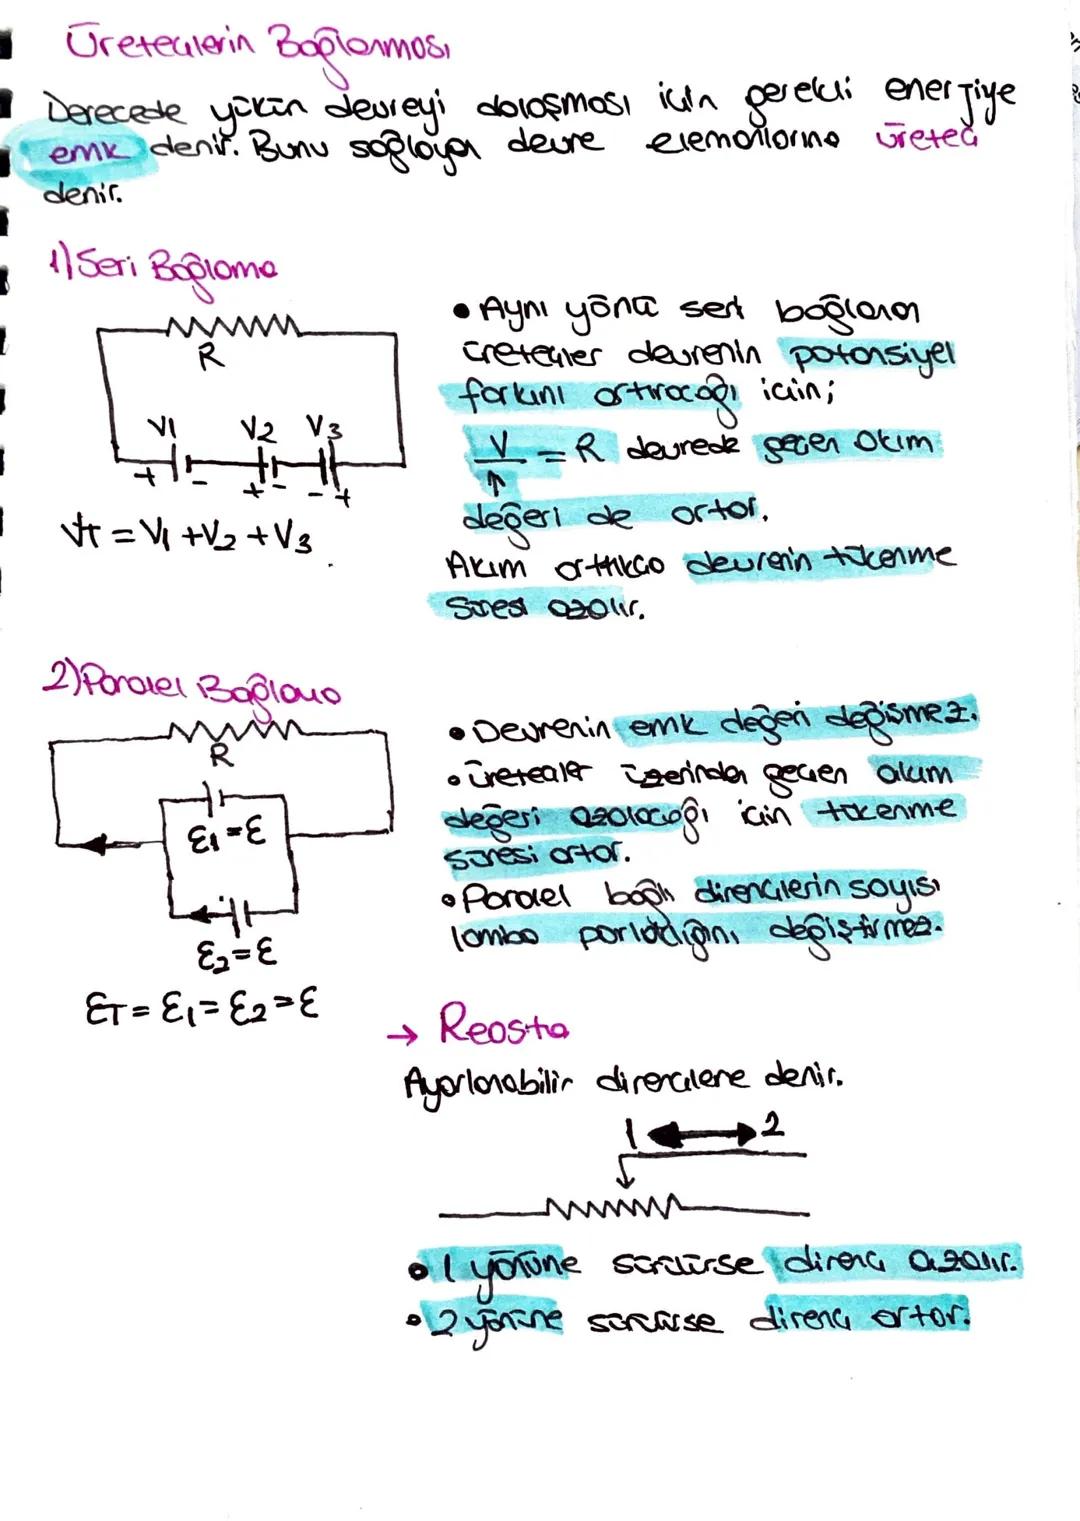 Üreteçlerin Bağlanması
Derecede yükün devreyi dolaşması için gerekli enerjiye
emk denir. Bunu sağlayan devre elemanlarına üreteç
denir.
1) Seri Bağlama
R
V1 V2 V3
+ - + - - +
VT = V1 + V2 + V3
• Aynı yönü seri bağlanan
üreteçler devrenin potansiyel
farkını artıracağı için;
V/↑ = R devrede geçen akım
değeri de artar.
Akım arttıkça devrenin tükenme
süresi azalır.
2) Paralel Bağlama
R
ε1 = ε
ε2 = ε
εT = ε1 = ε2 = ε
• Devrenin emk değeri değişmez.
• üreteçler üzerinden geçen akım
değeri azalacağı için tükenme
süresi artar.
• Paralel bağlı dirençlerin sayısı
lamba parlaklığını değiştirmez.
→ Reosta
Ayarlanabilir dirençlere denir.
1 ↔ 2
• 1 yönüne sürülürse direnç azalır.
• 2 yönüne sürülürse direnç artar.